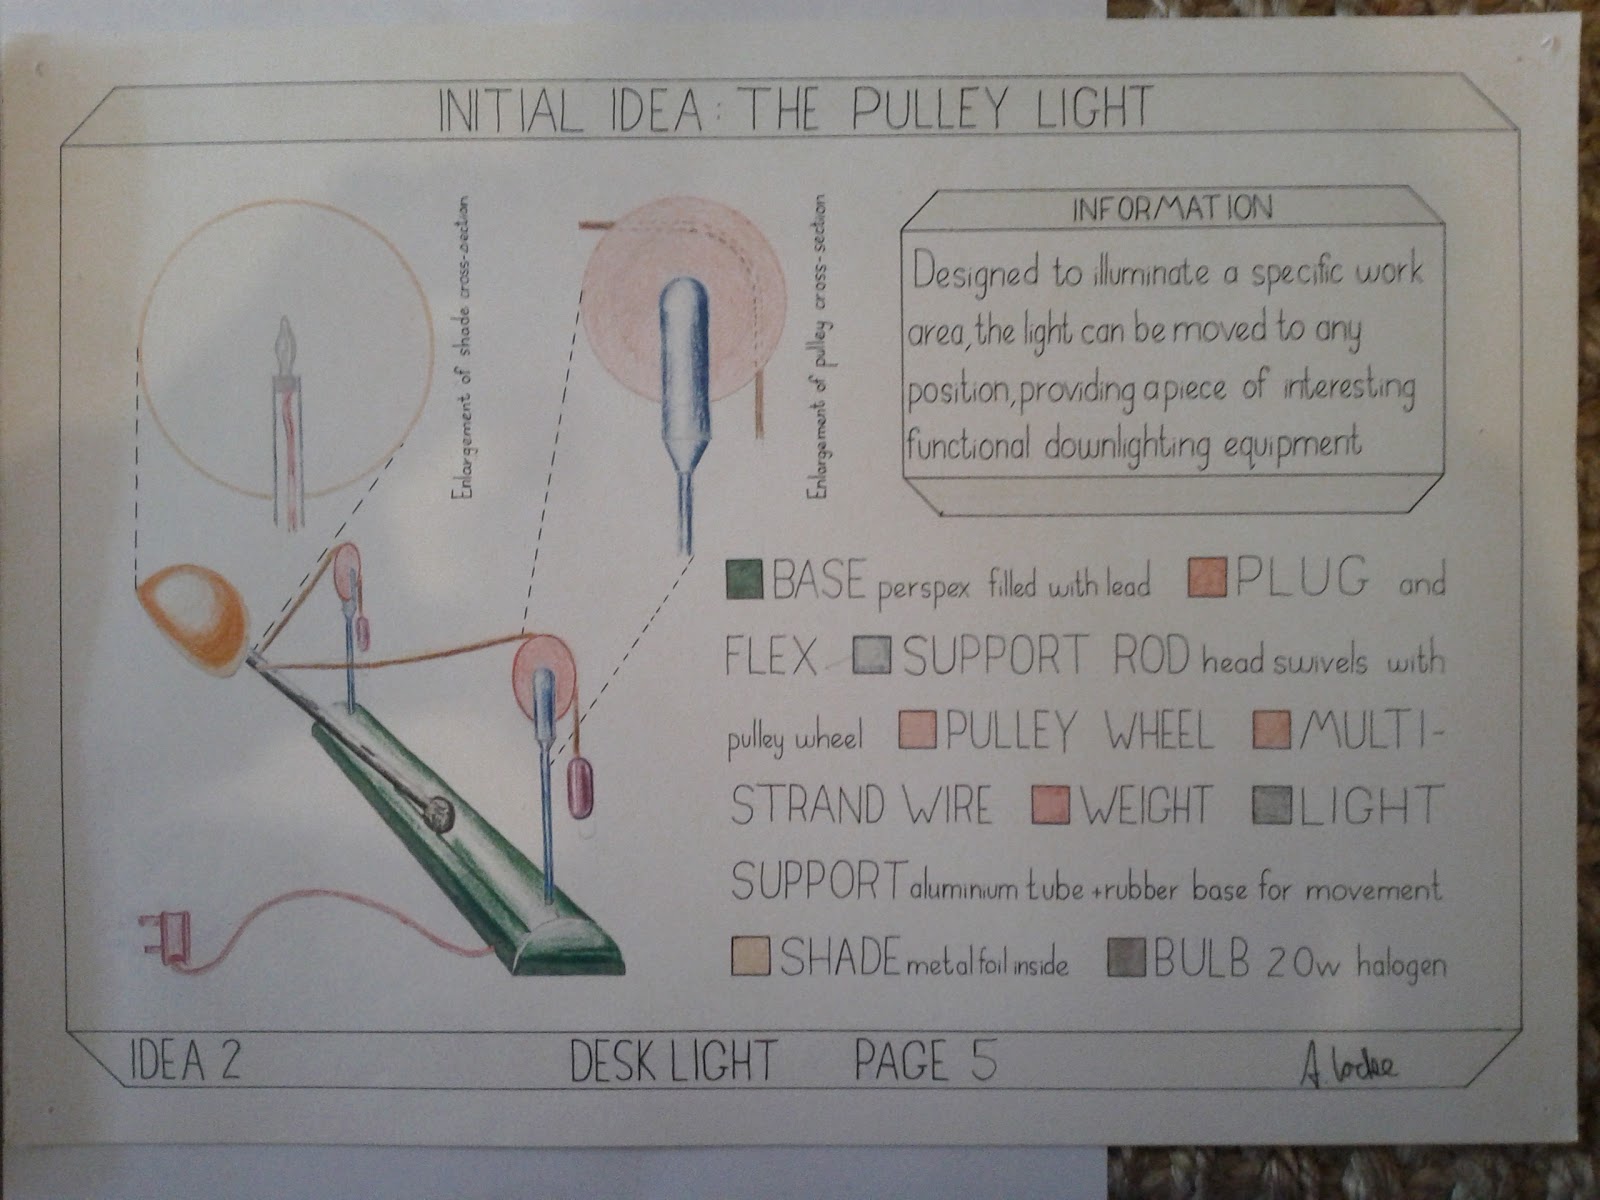 INITIAL IDEA: THE PULLEY LIGHT
Enlargement of shade cross-section
Enlargement of pulley cross-section
INFORMATION
Designed to illuminate a specific work
area, the light can be moved to any
position, providing a piece of interesting
functional downlighting equipment
BASE perspex filled with lead PLUG and
FLEX SUPPORT ROD head swivels with
pulley wheel PULLEY WHEEL MULTI-
STRAND WIRE WEIGHT LIGHT
SUPPORT aluminium tube + rubber base for movement
SHADE metal foil inside BULB 20w halogen
IDEA 2 DESK LIGHT PAGE 5 A. Locke